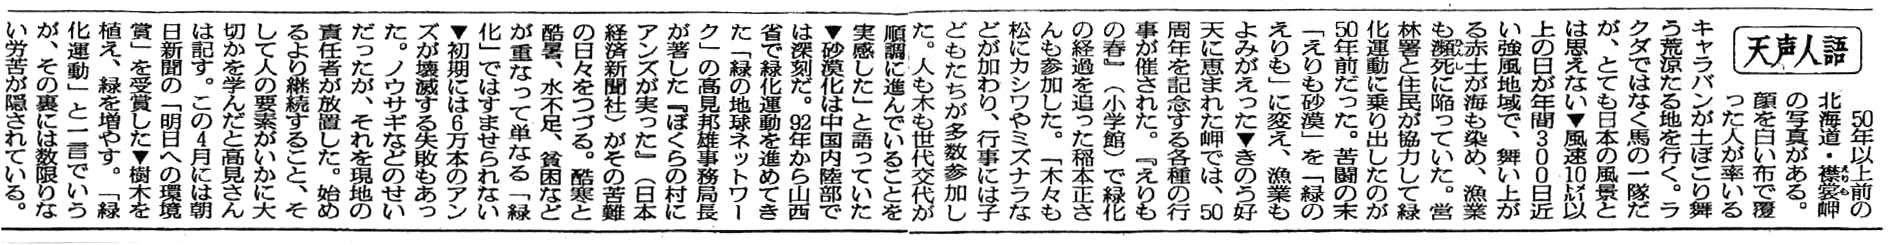 天声人語
50年以上前の
北海道・襟裳岬
の写真がある。
顔を白い布で覆
った人が率いる
キャラバンが土ぼこり舞
う荒涼たる地を行く。ラ
クダではなく馬の一隊だ
が、とても日本の風景と
は思えない▼風速10㍍以
上の日が年間300日近
い強風地域で、舞い上が
る赤土が海も染め、漁業
も瀕死に陥っていた。営
林署と住民が協力して緑
化運動に乗り出したのが
50年前だった。苦闘の末
「えりも砂漠」を「緑の
えりも」に変え、漁業も
よみがえった▼きのう好
天に恵まれた岬では、50
周年を記念する各種の行
事が催された。『えりも
の春』（小学館）で緑化
の経過を追った稲本正さ
んも参加した。「木々も
松にカシワやミズナラな
どが加わり、行事には子
どもたちが多数参加し
た。人も木も世代交代が
順調に進んでいることを
実感した」と語っていた
▼砂漠化は中国内陸部で
は深刻だ。92年から山西
省で緑化運動を進めてき
た「緑の地球ネットワー
ク」の高見邦雄事務局長
が著した『ぼくらの村に
アンズが実った』（日本
経済新聞社）がその苦難
の日々をつづる。酷寒と
酷暑、水不足、貧困など
が重なって単なる「緑
化」ではすませられない
▼初期には6万本のアン
ズが壊滅する失敗もあっ
た。ノウサギなどのせい
だったが、それを現地の
責任者が放置した。始め
るより継続すること、そ
して人の要素がいかに大
切かを学んだと高見さん
は記す。この4月には朝
日新聞の「明日への環境
賞」を受賞した▼樹木を
植え、緑を増やす。「緑
化運動」と一言でいう
が、その裏には数限りな
い労苦が隠されている。